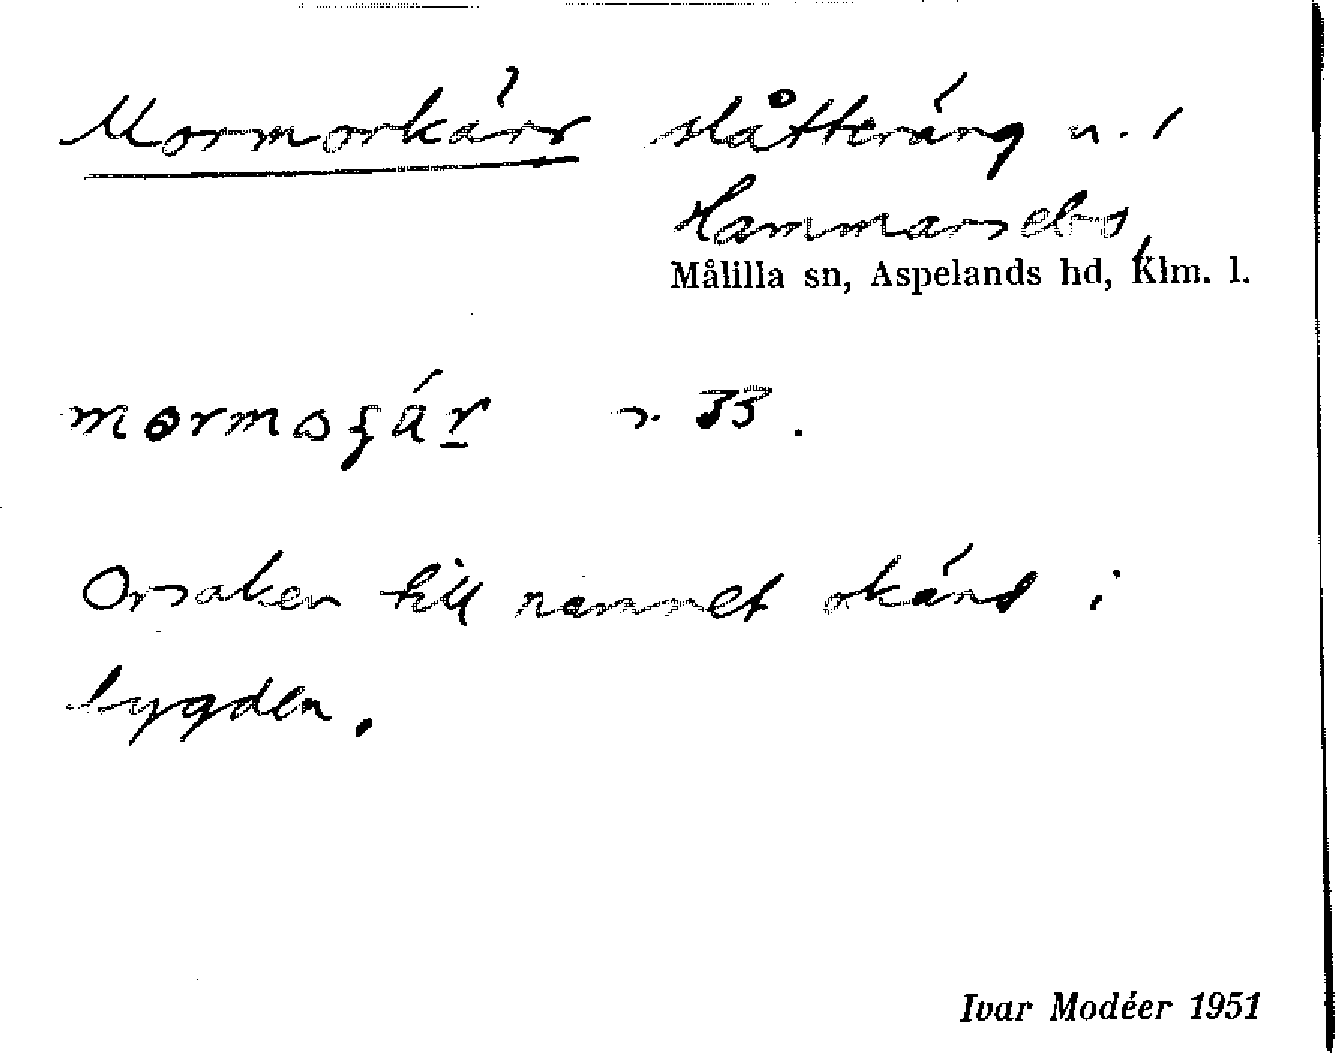 Mormorkärr slåtteräng u. /
Hammarsebo,
Målilla sn, Aspelands hd, Klm. l.
33.
Orsaken till namnet okänd i
bygden.
Ivar Modéer 1951